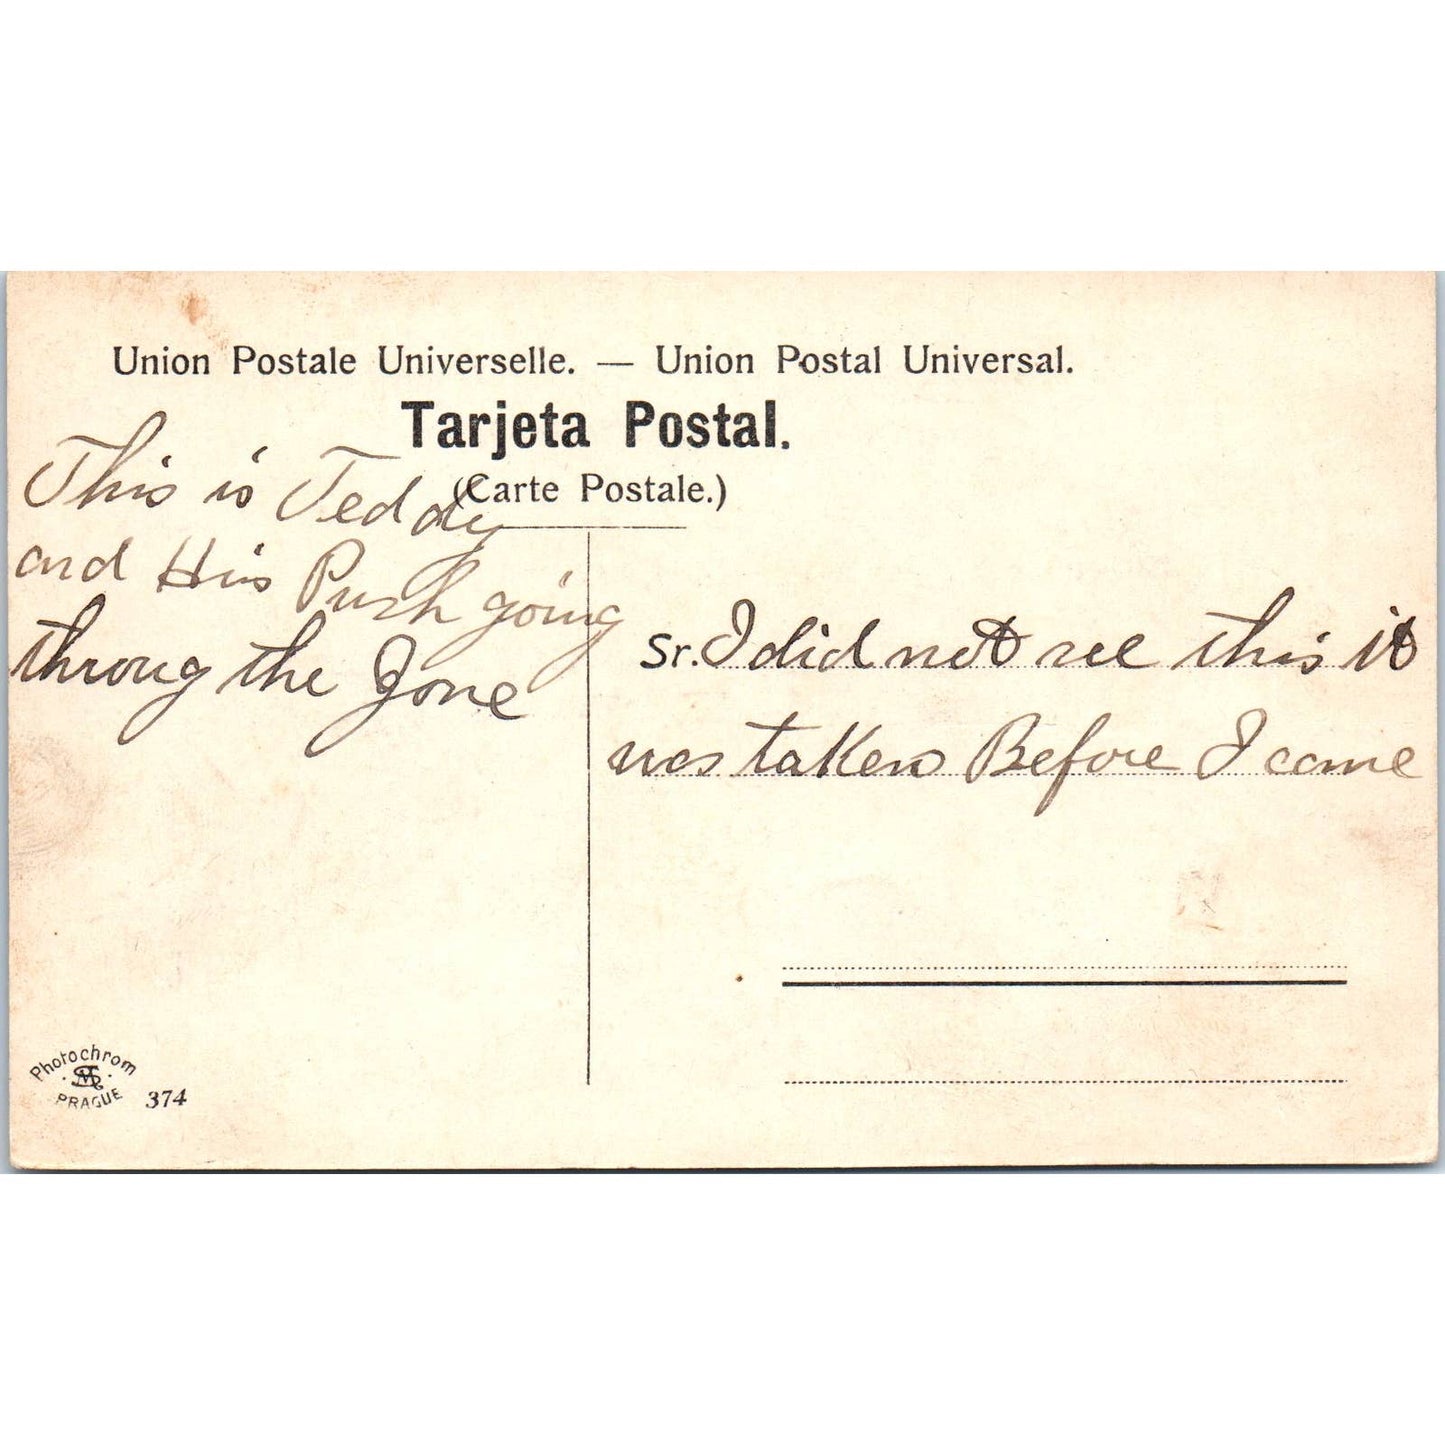 Union Postale Universelle. — Union Postal Universal.
Tarjeta Postal.
(Carte Postale.)
This is Teddy
and His Push going
throug the Zone
Sr. I did not see this it
was taken Before I came
Photochrom
PRAGUE 374